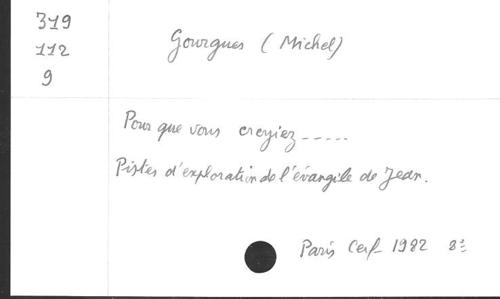 319
112
9
Gourgues (Michel)
Pour que vous croyiez -----
Pistes d'exploration de l'évangile de Jean.
Paris Cerf 1982 8º